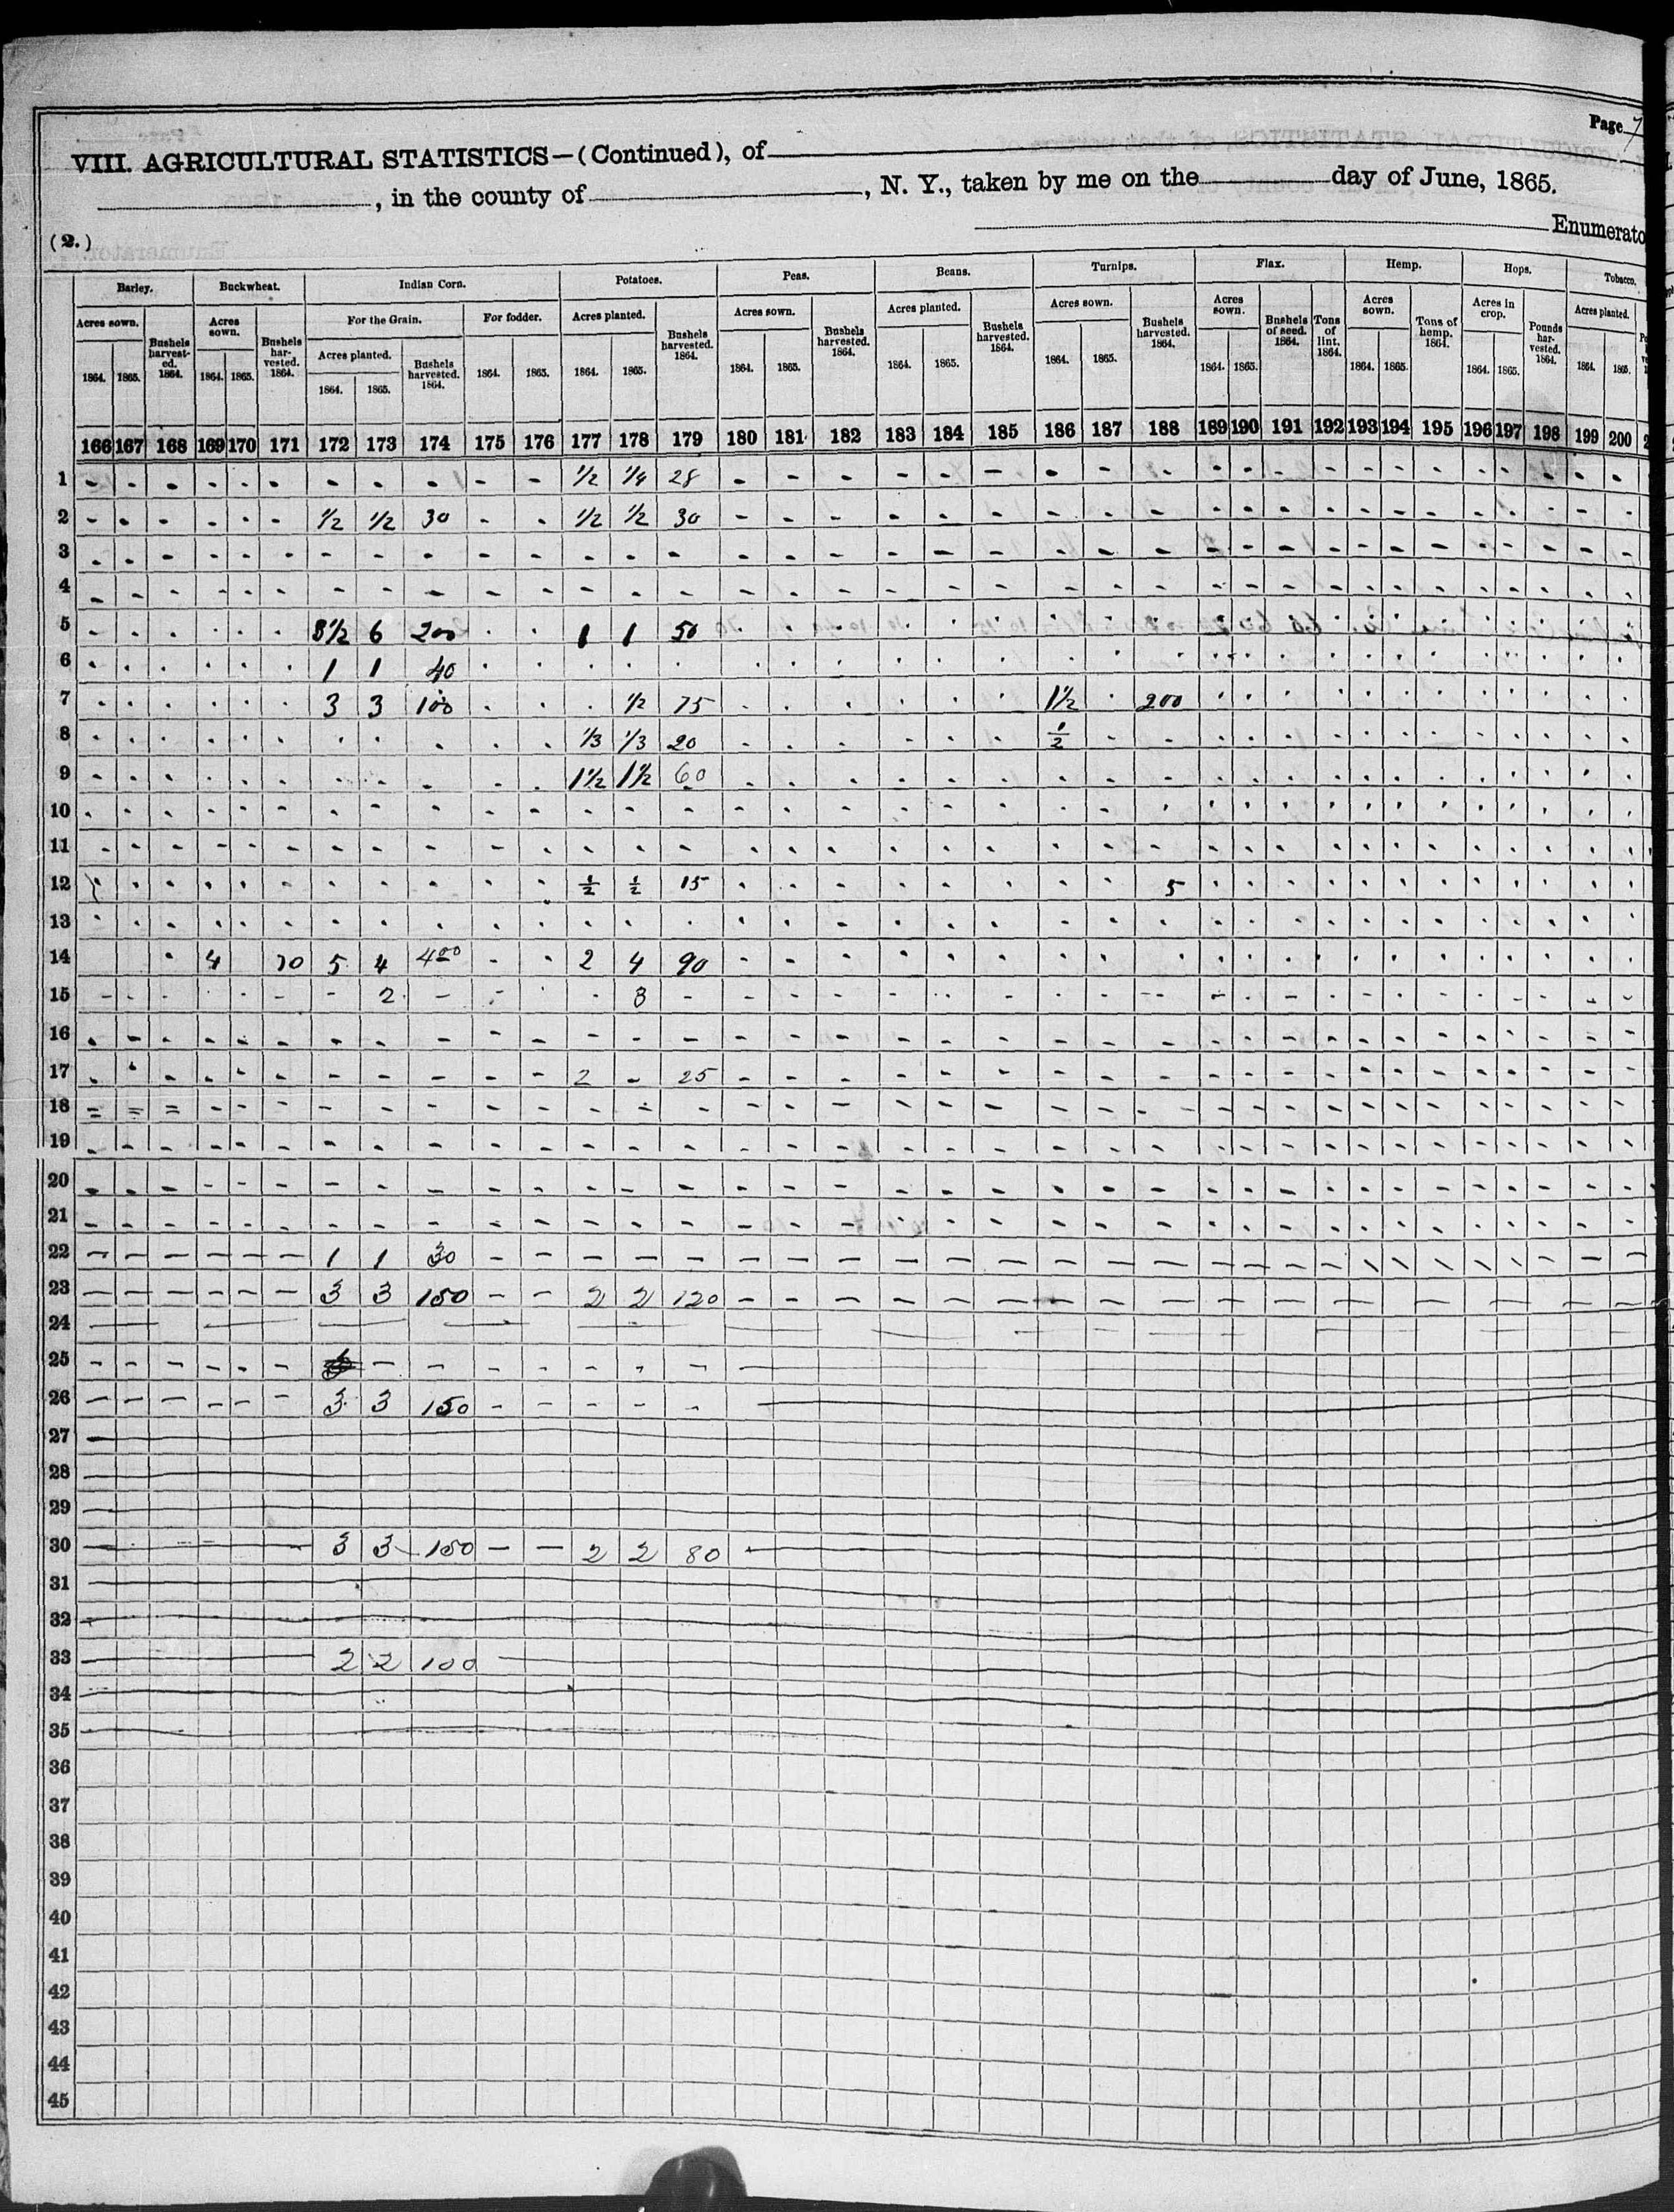 Page 7
VIII. AGRICULTURAL STATISTICS—(Continued), of
, in the county of , N. Y., taken by me on the day of June, 1865.
Enumerato
(2.)
Barley. Buckwheat. Indian Corn. Potatoes. Peas. Beans. Turnips. Flax. Hemp. Hops. Tobacco.
Acres sown. Bushels harvest-ed. 1864. Acres sown. Bushels har-vested. 1864. For the Grain. For fodder. Acres planted. Bushels harvested. 1864. Acres sown. Bushels harvested. 1864. Acres planted. Bushels harvested. 1864. Acres sown. Bushels harvested. 1864. Acres sown. Bushels of seed. 1864. Tons of lint. 1864. Acres sown. Tons of hemp. 1864. Acres in crop. Pounds har-vested. 1864. Acres planted.
Acres planted. Bushels harvested. 1864.
1864. 1865. 1864. 1865. 1864. 1865. 1864. 1865. 1864. 1865. 1864. 1865. 1864. 1865. 1864. 1865. 1864. 1865. 1864. 1865. 1864. 1865. 1864. 1865.
166 167 168 169 170 171 172 173 174 175 176 177 178 179 180 181 182 183 184 185 186 187 188 189 190 191 192 193 194 195 196 197 198 199 200 2
1 - - - - - - - - - - - 1/2 1/4 28 - - - - - - - - - - - - - - - - - - - - -
2 - - - - - - 1/2 1/2 30 - - 1/2 1/2 30 - - - - - - - - - - - - - - - - - - - - -
3 - - - - - - - - - - - - - - - - - - - - - - - - - - - - - - - - - - -
4 - - - - - - - - - - - - - - - - - - - - - - - - - - - - - - - - - - -
5 - - - - - - 8 1/2 6 200 - - 1 1 50 - - - - - - - - - - - - - - - - - - - - -
6 - - - - - - 1 1 40 - - - - - - - - - - - - - - - - - - - - - - - - - -
7 - - - - - - 3 3 100 - - - 1/2 75 - - - - - - 1 1/2 - 200 - - - - - - - - - - - -
8 - - - - - - - - - - - 1/3 1/3 20 - - - - - - 1/2 - - - - - - - - - - - - - -
9 - - - - - - - - - - - 1 1/2 1 1/2 60 - - - - - - - - - - - - - - - - - - - - -
10 - - - - - - - - - - - - - - - - - - - - - - - - - - - - - - - - - - -
11 - - - - - - - - - - - - - - - - - - - - - - - - - - - - - - - - - - -
12 - - - - - - - - - - - 1/2 1/2 15 - - - - - - - - 5 - - - - - - - - - - - -
13 - - - - - - - - - - - - - - - - - - - - - - - - - - - - - - - - - - -
14 - 4 70 5 4 400 - - 2 4 90 - - - - - - - - - - - - - - - - - - - - -
15 - - - - - - - 2 - - - - 3 - - - - - - - - - - - - - - - - - - - - - -
16 - - - - - - - - - - - - - - - - - - - - - - - - - - - - - - - - - - -
17 - - - - - - - - - - - 2 - 25 - - - - - - - - - - - - - - - - - - - - -
18 = = = - - - - - - - - - - - - - - - - - - - - - - - - - - - - - - - -
19 - - - - - - - - - - - - - - - - - - - - - - - - - - - - - - - - - - -
20 - - - - - - - - - - - - - - - - - - - - - - - - - - - - - - - - - - -
21 - - - - - - - - - - - - - - - - - - - - - - - - - - - - - - - - - - -
22 - - - - - - 1 1 30 - - - - - - - - - - - - - - - - - - - - - - - - - -
23 - - - - - - 3 3 150 - - 2 2 120 - - - - - - - - - - - - - - - - - - -
24
25 - - - - - - - - - - - - -
26 - - - - - - 3 3 150 - - - - -
27
28
29
30 3 3 150 - - 2 2 80
31
32
33 2 2 100
34
35
36
37
38
39
40
41
42
43
44
45